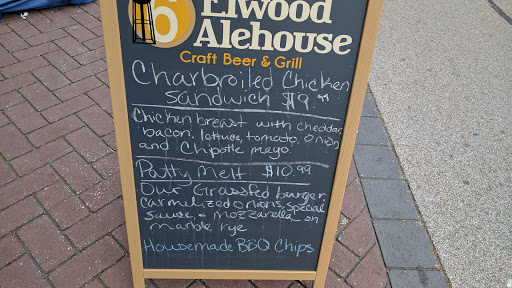 6
Elwood
Alehouse
Craft Beer & Grill
Charbroiled Chicken
Sandwich $9.99
Chicken breast with cheddar,
bacon, lettuce, tomato, onion
and Chipotle mayo.
Patty Melt $10.99
Our Grassfed burger,
Carmulized onions, special
sauce, + mozzarella on
marble rye
Housemade BBQ Chips